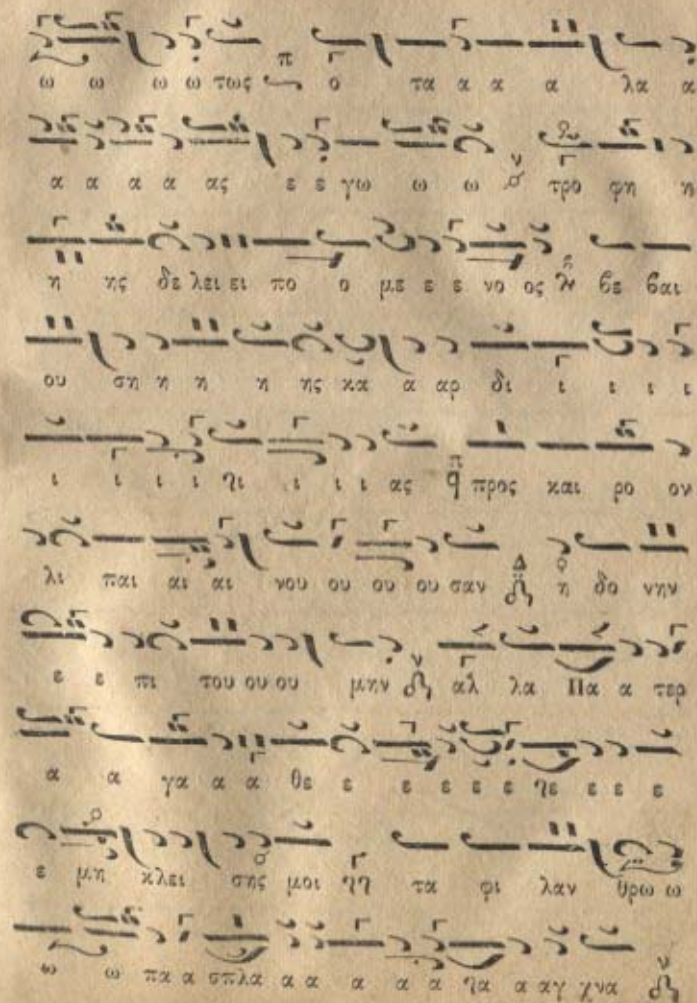 ω ω ω ω τως ο τα α α α λα α
α α α α ας ε ε γω ω ω τρο φη η
η ης δε λει ει πο ο με ε ε νο ος βε βαι
ου ση η η η ης κα α αρ δι ι ι ι ι
ι ι ι ι ηι ι ι ι ας προς και ρο ον
λι παι αι αι νου ου ου ου σαν η δο νην
ε ε πι του ου ου μην αλ λα Πα α τερ
α α γα α α θε ε ε ε ε ε ηε ε ε ε
ε μη κλει σης μοι τα φι λαν θρω ω
ω ω πα α σπλα α α α α α ηα α αγ χνα